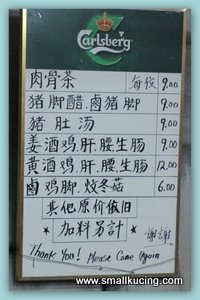 Carlsberg
肉骨茶 每位 9.00
猪脚醋.鹵猪脚 9.00
猪肚汤 9.00
姜酒鸡.肝.腰生肠 9.00
黄酒鸡.肝.腰生肠 12.00
鹵鸡脚.炆冬菇 6.00
其他原价依旧
*加料另計* 謝謝
Thank You! Please Come Again
www.smallkucing.com